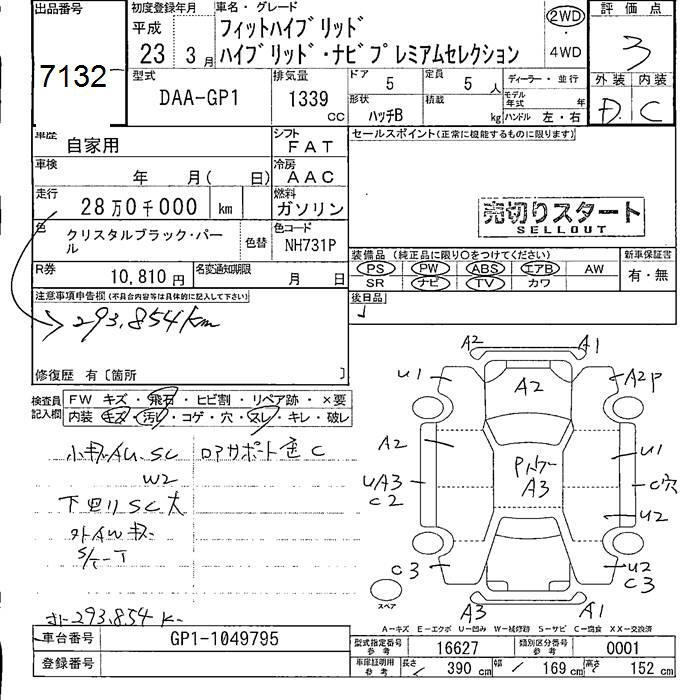 出品番号
7132
初度登録年月 車名・グレード
平成 フィットハイブリッド
23 3月 ハイブリッド・ナビプレミアムセレクション
2WD
・
4WD
評価点
3
外装 内装
D. C
型式 排気量 ドア 定員 ディーラー・並行
DAA-GP1 1339 cc 5 5人
形状 積載 モデル年式 年
ハッチB kg ハンドル 左・右
車歴 自家用 シフト FAT
セールスポイント(正常に機能するものに限ります)
車検 年 月( 日) 冷房 AAC
走行 28万0千000 km 燃料 ガソリン
売切りスタート
SELLOUT
色 クリスタルブラック・パール 色替 色コード NH731P
装備品 (純正品に限り○をつけてください) 新車保証書
PS PW ABS エアB AW
SR ナビ TV カワ
有・無
R券 10,810円 名変通知期限 月 日
後日品
注意事項申告欄(不具合内容等は具体的に記入して下さい)
293,854km
修復歴 有〔箇所 〕
検査員記入欄 FW キズ・飛石・ヒビ割・リペア跡・×要
内装 キズ・汚レ・コゲ・穴・スレ・キレ・破レ
小キズAU、SC ロアサポート C
W2
下回りSC大
外AW
S/T-T
293,854k
A2 A1
U1 A2 A2P
A2 U1
UA3 A3 C穴
C2 U2
C3 U2
C3
スペア A3 A1
A-キズ E-エクボ U-凹み W-補修跡 S-サビ C-腐食 XX-交換済
車台番号 GP1-1049795
型式指定番号 参考 16627 類別区分番号 参考 0001
登録番号
車庫証明用 参考 長さ 390cm 幅 169cm 高さ 152cm